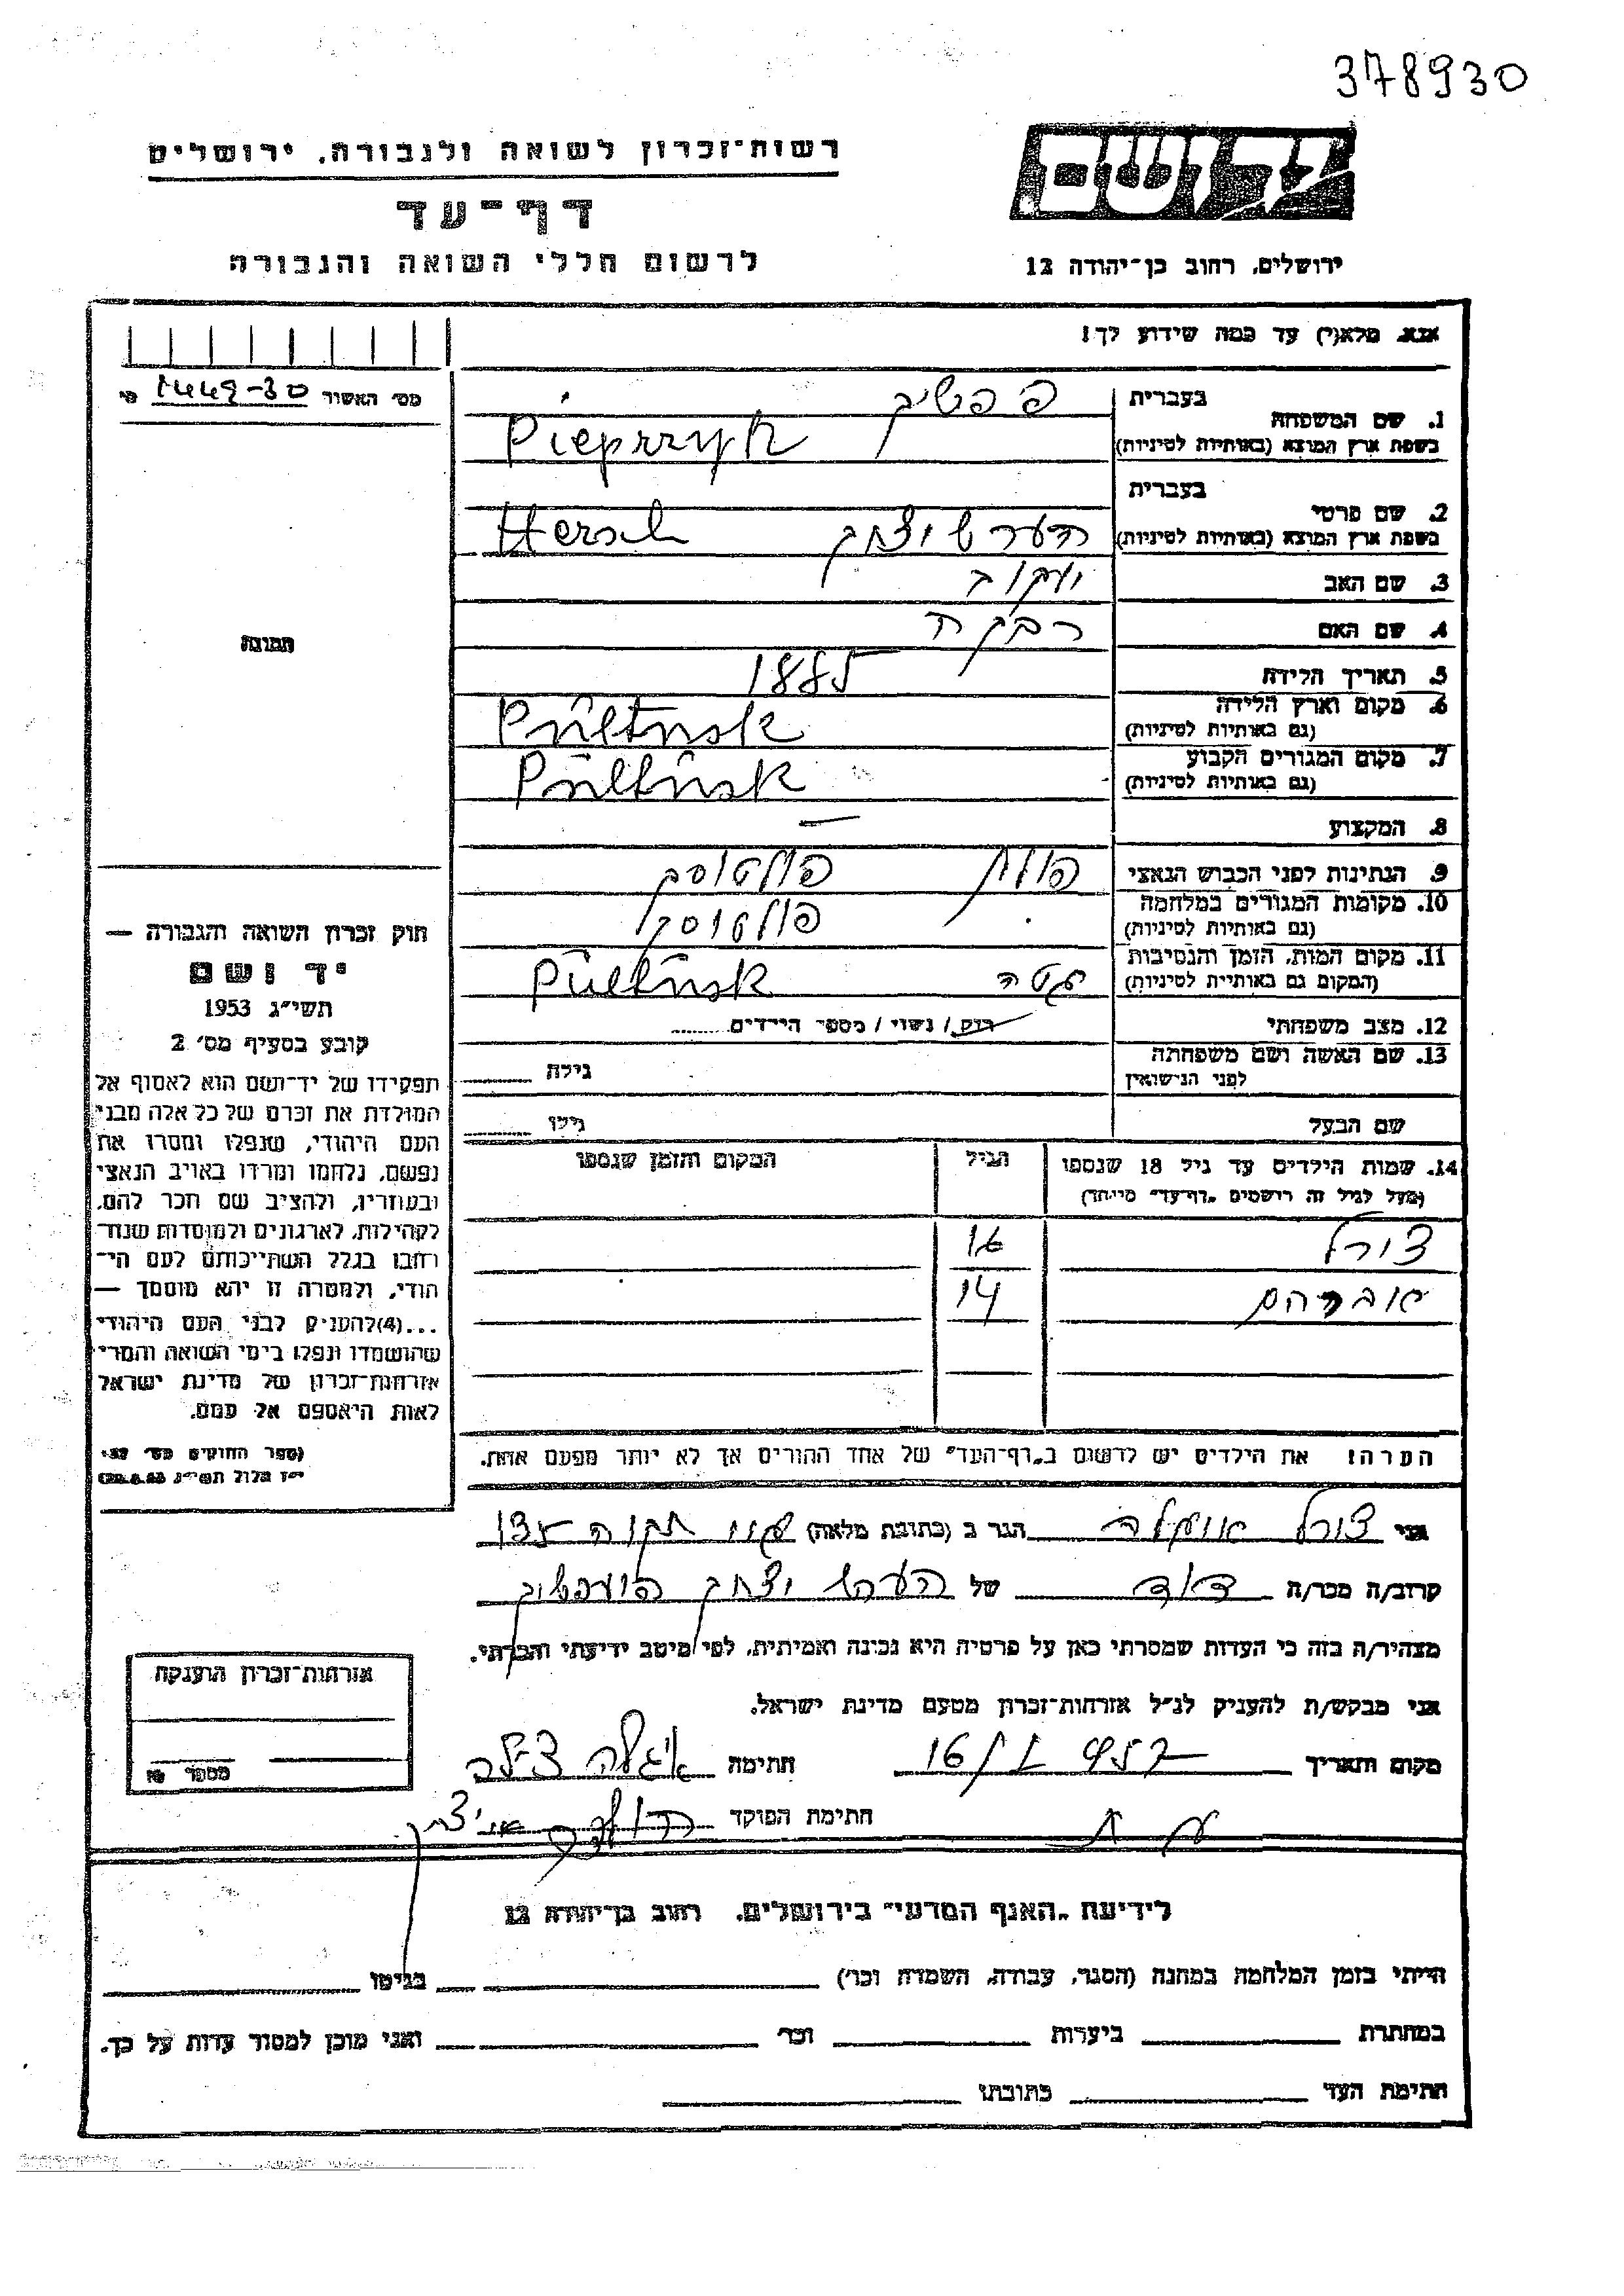 378930
רשות־זכרון לשואה ולגבורה, ירושלים
יד ושם
דף־עד
לרשום חללי השואה והגבורה
ירושלים, רחוב בן־יהודה 12
אנא, מלא(י) עד כמה שידוע לך!
מס׳ האשור
בעברית
1. שם המשפחה
בשפת ארץ המוצא (באותיות לטיניות) Pieprzyk
בעברית
2. שם פרטי
בשפת ארץ המוצא (באותיות לטיניות) הערש יצחק Hersch
3. שם האב יעקוב
4. שם האם רבקה
5. תאריך הלידה 1885
6. מקום וארץ הלידה Pultusk
(גם באותיות לטיניות)
7. מקום המגורים הקבוע Pultusk
(גם באותיות לטיניות)
8. המקצוע —
9. הנתינות לפני הכבוש הנאצי פולית פולטוסק
10. מקומות המגורים במלחמה פולטוסק
(גם באותיות לטיניות)
11. מקום המות, הזמן והנסיבות Pultusk
(המקום גם באותיות לטיניות)
12. מצב משפחתי רווק/ נשוי / מספר הילדים
13. שם האשה ושם משפחתה גילה
לפני הנישואין
שם הבעל גילו
14. שמות הילדים עד גיל 18 שנספו הגיל המקום והזמן שנספו
(מעל לגיל זה רושמים „דף־עד״ מיוחד)
16
אברהם 14
הערה! את הילדים יש לרשום ב„דף־העד״ של אחד ההורים אך לא יותר מפעם אחת.
תמונה
חוק זכרון השואה והגבורה —
יד ושם
תשי״ג 1953
קובע בסעיף מס׳ 2
תפקידו של יד־ושם הוא לאסוף אל
המולדת את זכרם של כל אלה מבני
העם היהודי, שנפלו ומסרו את
נפשם, נלחמו ומרדו באויב הנאצי
ובעוזריו, ולהציב שם וזכר להם,
לקהילות, לארגונים ולמוסדות שנח־
רבו בגלל השתייכותם לעם הי־
הודי, ולמטרה זו יהא מוסמך —
...(4)להעניק לבני העם היהודי
שהושמדו ונפלו בימי השואה והמרי
אזרחות־זכרון של מדינת ישראל
לאות היאספם אל עמם.
(ספר החוקים מס׳
י״ז אלול תשי״ג
אני הגר ב (כתובת מלאה)
קרוב/ה מכר/ה דוד של הערש יצחק
מצהיר/ה בזה כי העדות שמסרתי כאן על פרטיה היא נכונה ואמיתית, לפי מיטב ידיעתי והכרתי.
אני מבקש/ת להעניק לנ״ל אזרחות־זכרון מטעם מדינת ישראל.
מקום ותאריך חתימה
חתימת הפוקד
אזרחות־זכרון הוענקה
מספר
לידיעת „האגף המדעי״ בירושלים, רחוב בן־יהודה 12
הייתי בזמן המלחמה במחנה (הסגר, עבודה, השמדה וכו׳) בגיטו
במחתרת ביערות וכו׳ ואני מוכן למסור עדות על כך.
חתימת העד כתובתו